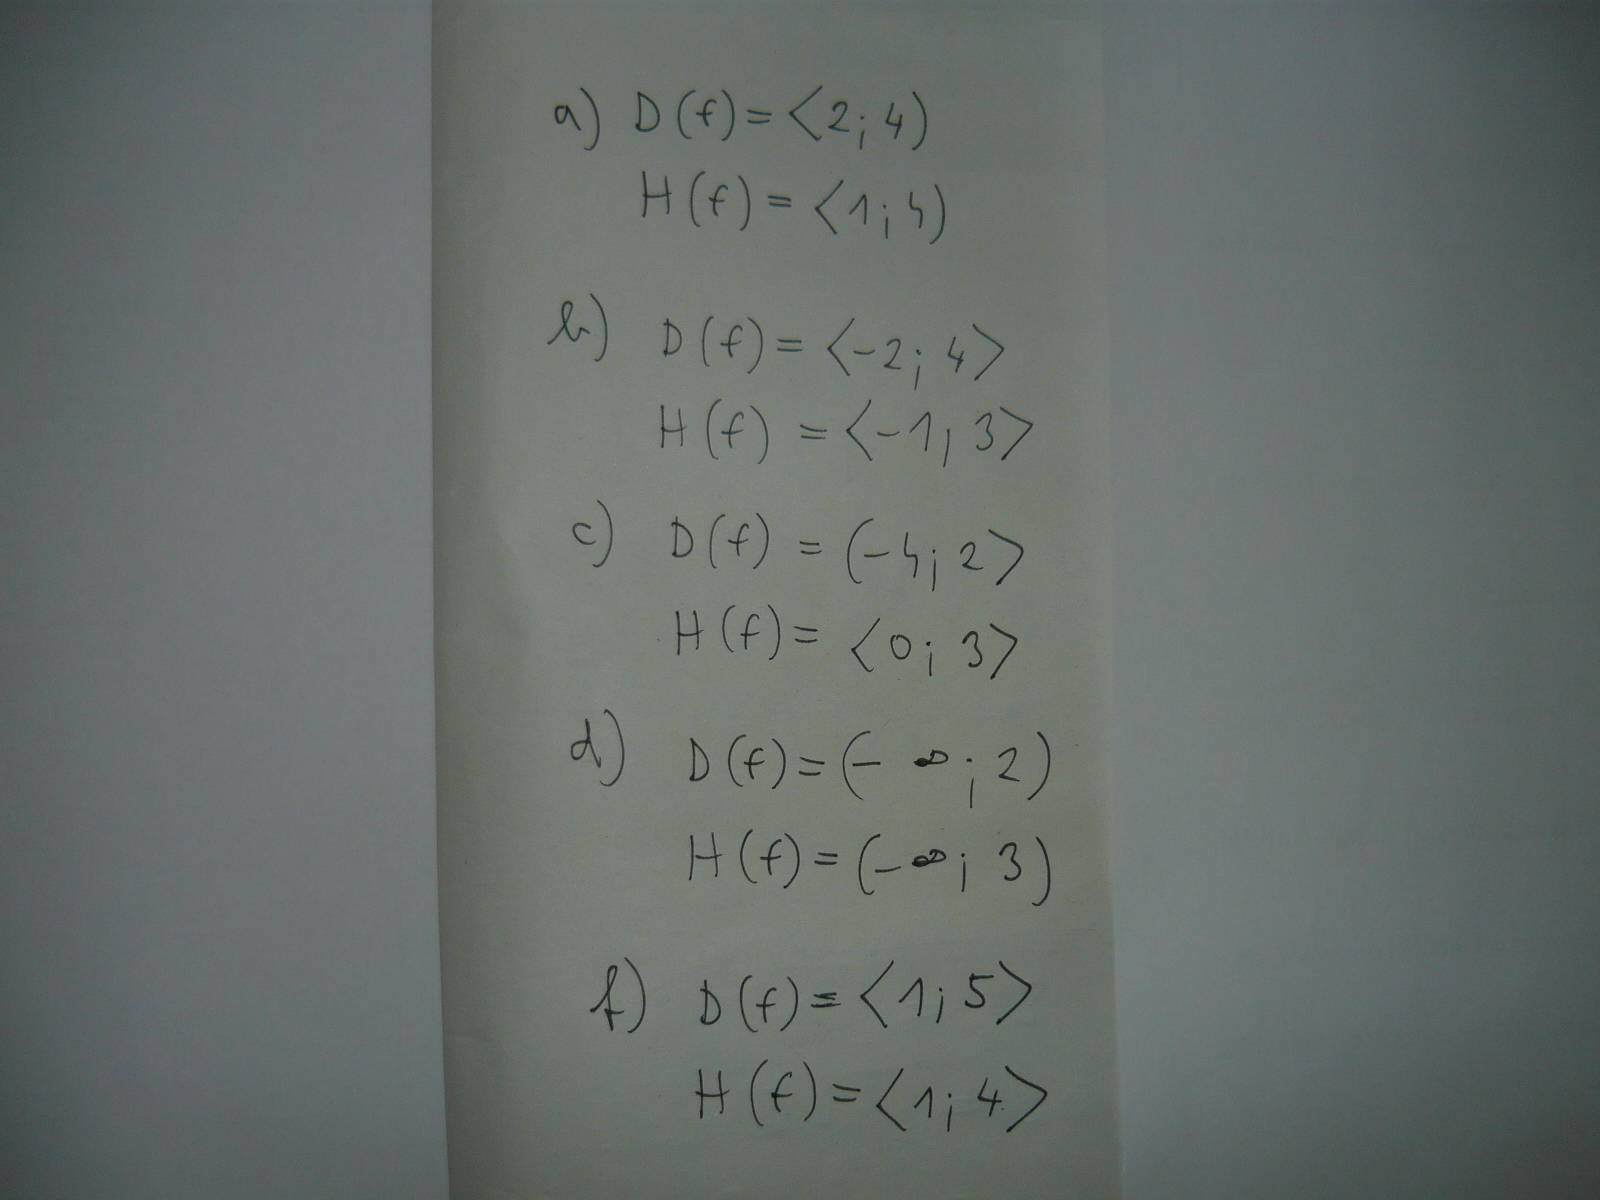 a) D(f)=⟨2;4)
H(f)=⟨1;4)
b) D(f)=⟨-2;4⟩
H(f)=⟨-1;3⟩
c) D(f)=(-4;2⟩
H(f)=⟨0;3⟩
d) D(f)=(-∞;2)
H(f)=(-∞;3)
f) D(f)=⟨1;5⟩
H(f)=⟨1;4⟩